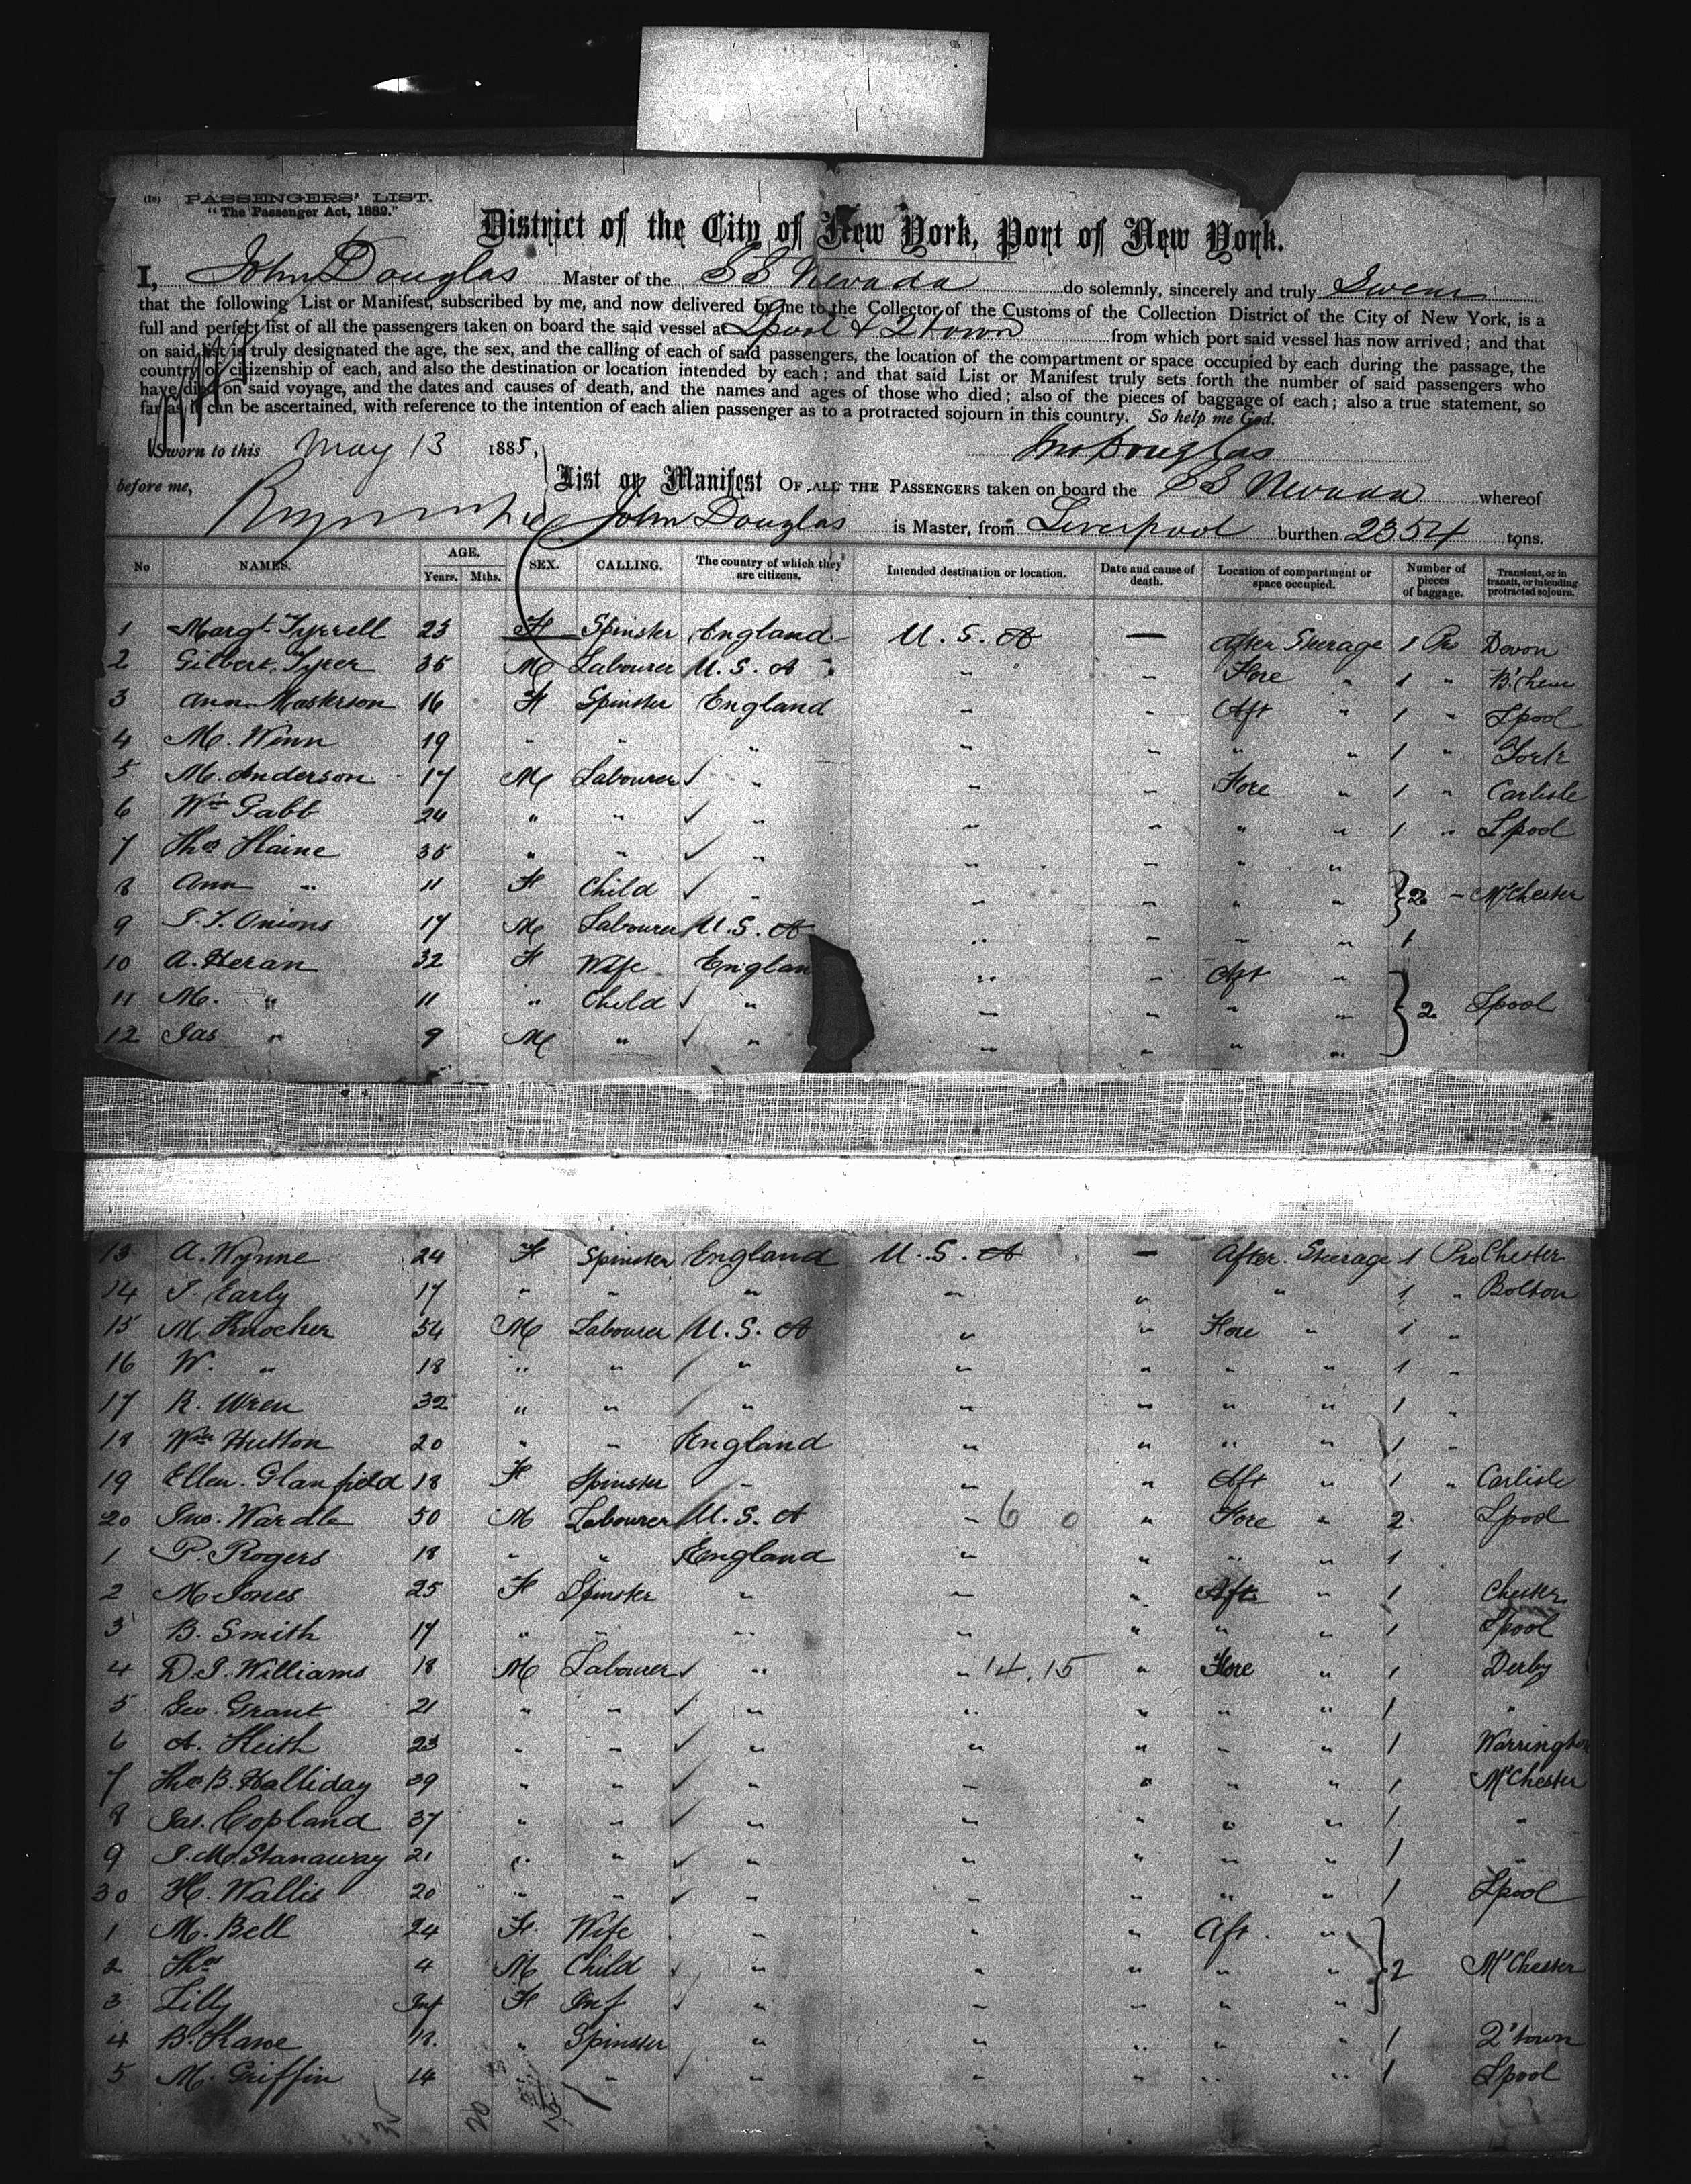 (18) PASSENGERS' LIST.
"The Passenger Act, 1882."
District of the City of New York, Port of New York.
I, John Douglas Master of the SS Nevada do solemnly, sincerely and truly Swear
that the following List or Manifest, subscribed by me, and now delivered by me to the Collector of the Customs of the Collection District of the City of New York, is a
full and perfect list of all the passengers taken on board the said vessel at Lpool & Qtown from which port said vessel has now arrived; and that
on said list is truly designated the age, the sex, and the calling of each of said passengers, the location of the compartment or space occupied by each during the passage, the
country of citizenship of each, and also the destination or location intended by each; and that said List or Manifest truly sets forth the number of said passengers who
have died on said voyage, and the dates and causes of death, and the names and ages of those who died; also of the pieces of baggage of each; also a true statement, so
far as it can be ascertained, with reference to the intention of each alien passenger as to a protracted sojourn in this country. So help me God.
Sworn to this May 13 1885, Jno Douglas
before me, List or Manifest OF ALL THE PASSENGERS taken on board the SS Nevada whereof
John Douglas is Master, from Liverpool burthen 2354 tons.
No NAMES. AGE. Years. Mths. SEX. CALLING. The country of which they are citizens. Intended destination or location. Date and cause of death. Location of compartment or space occupied. Number of pieces of baggage. Transient, or in transit, or intending protracted sojourn.
1 Margt. Tyrrell 23 F Spinster England U. S. A — After Steerage 1 Devon
2 Gilbert Tyrer 35 M Labourer U. S. A " - Fore " 1 "
3 Ann Masterson 16 F Spinster England " - Aft " 1 " Lpool
4 M. Winn 19 " " " " - " " 1 " York
5 M. Anderson 17 M Labourer " " - Fore " 1 " Carlisle
6 Wm Gabb 24 " " " " - " " 1 " Lpool
7 Thos Haine 35 " " " " - " "
8 Ann " 11 F Child " " - " " 2 - McChester
9 J. T. Onions 17 M Labourer U. S. A " - " " 1
10 A. Heran 32 F Wife Englan " - Aft "
11 M. " 11 " Child " " - " " 2 Lpool
12 Jas " 9 M " " " - " "
13 A. Wynne 24 F Spinster England U. S. A — After Steerage 1 Chester
14 J. Early 17 " " " " " " 1 " Bolton
15 M Knocher 54 M Labourer U. S. A " " Fore " 1 "
16 W. " 18 " " " " " " " 1 "
17 R. Wren 32 " " " " " " " 1 "
18 Wm Hutton 20 " " England " " " " 1 "
19 Ellen Glanfield 18 F Spinster " " " Aft " 1 " Carlisle
20 Jno. Wardle 50 M Labourer U. S. A " 6 0 " Fore " 2 Lpool
1 P. Rogers 18 " " England " " " " 1
2 M Jones 25 F Spinster " " " Aft " 1 Chester
3 B. Smith 17 " " " " " " " 1 Lpool
4 D. J. Williams 18 M Labourer " " 14.15 " Fore " 1 Derby
5 Geo. Grant 21 " " " " " " " 1 "
6 A. Keith 23 " " " " " " " 1 Warrington
7 Thos B. Halliday 39 " " " " " " " 1 McChester
8 Jas. Copland 37 " " " " " " " 1 "
9 J. M. Stanaway 21 " " " " " " " 1 "
30 H. Wallis 20 " " " " " " " 1 Lpool
1 M. Bell 24 F Wife " " " Aft "
2 Thos 4 M Child " " " " " 2 McChester
3 Lilly Inf F Inf " " " " "
4 B. Kane 18 " Spinster " " " " " 1 Q'town
5 M. Griffin 14 " " " " " " " 1 Lpool